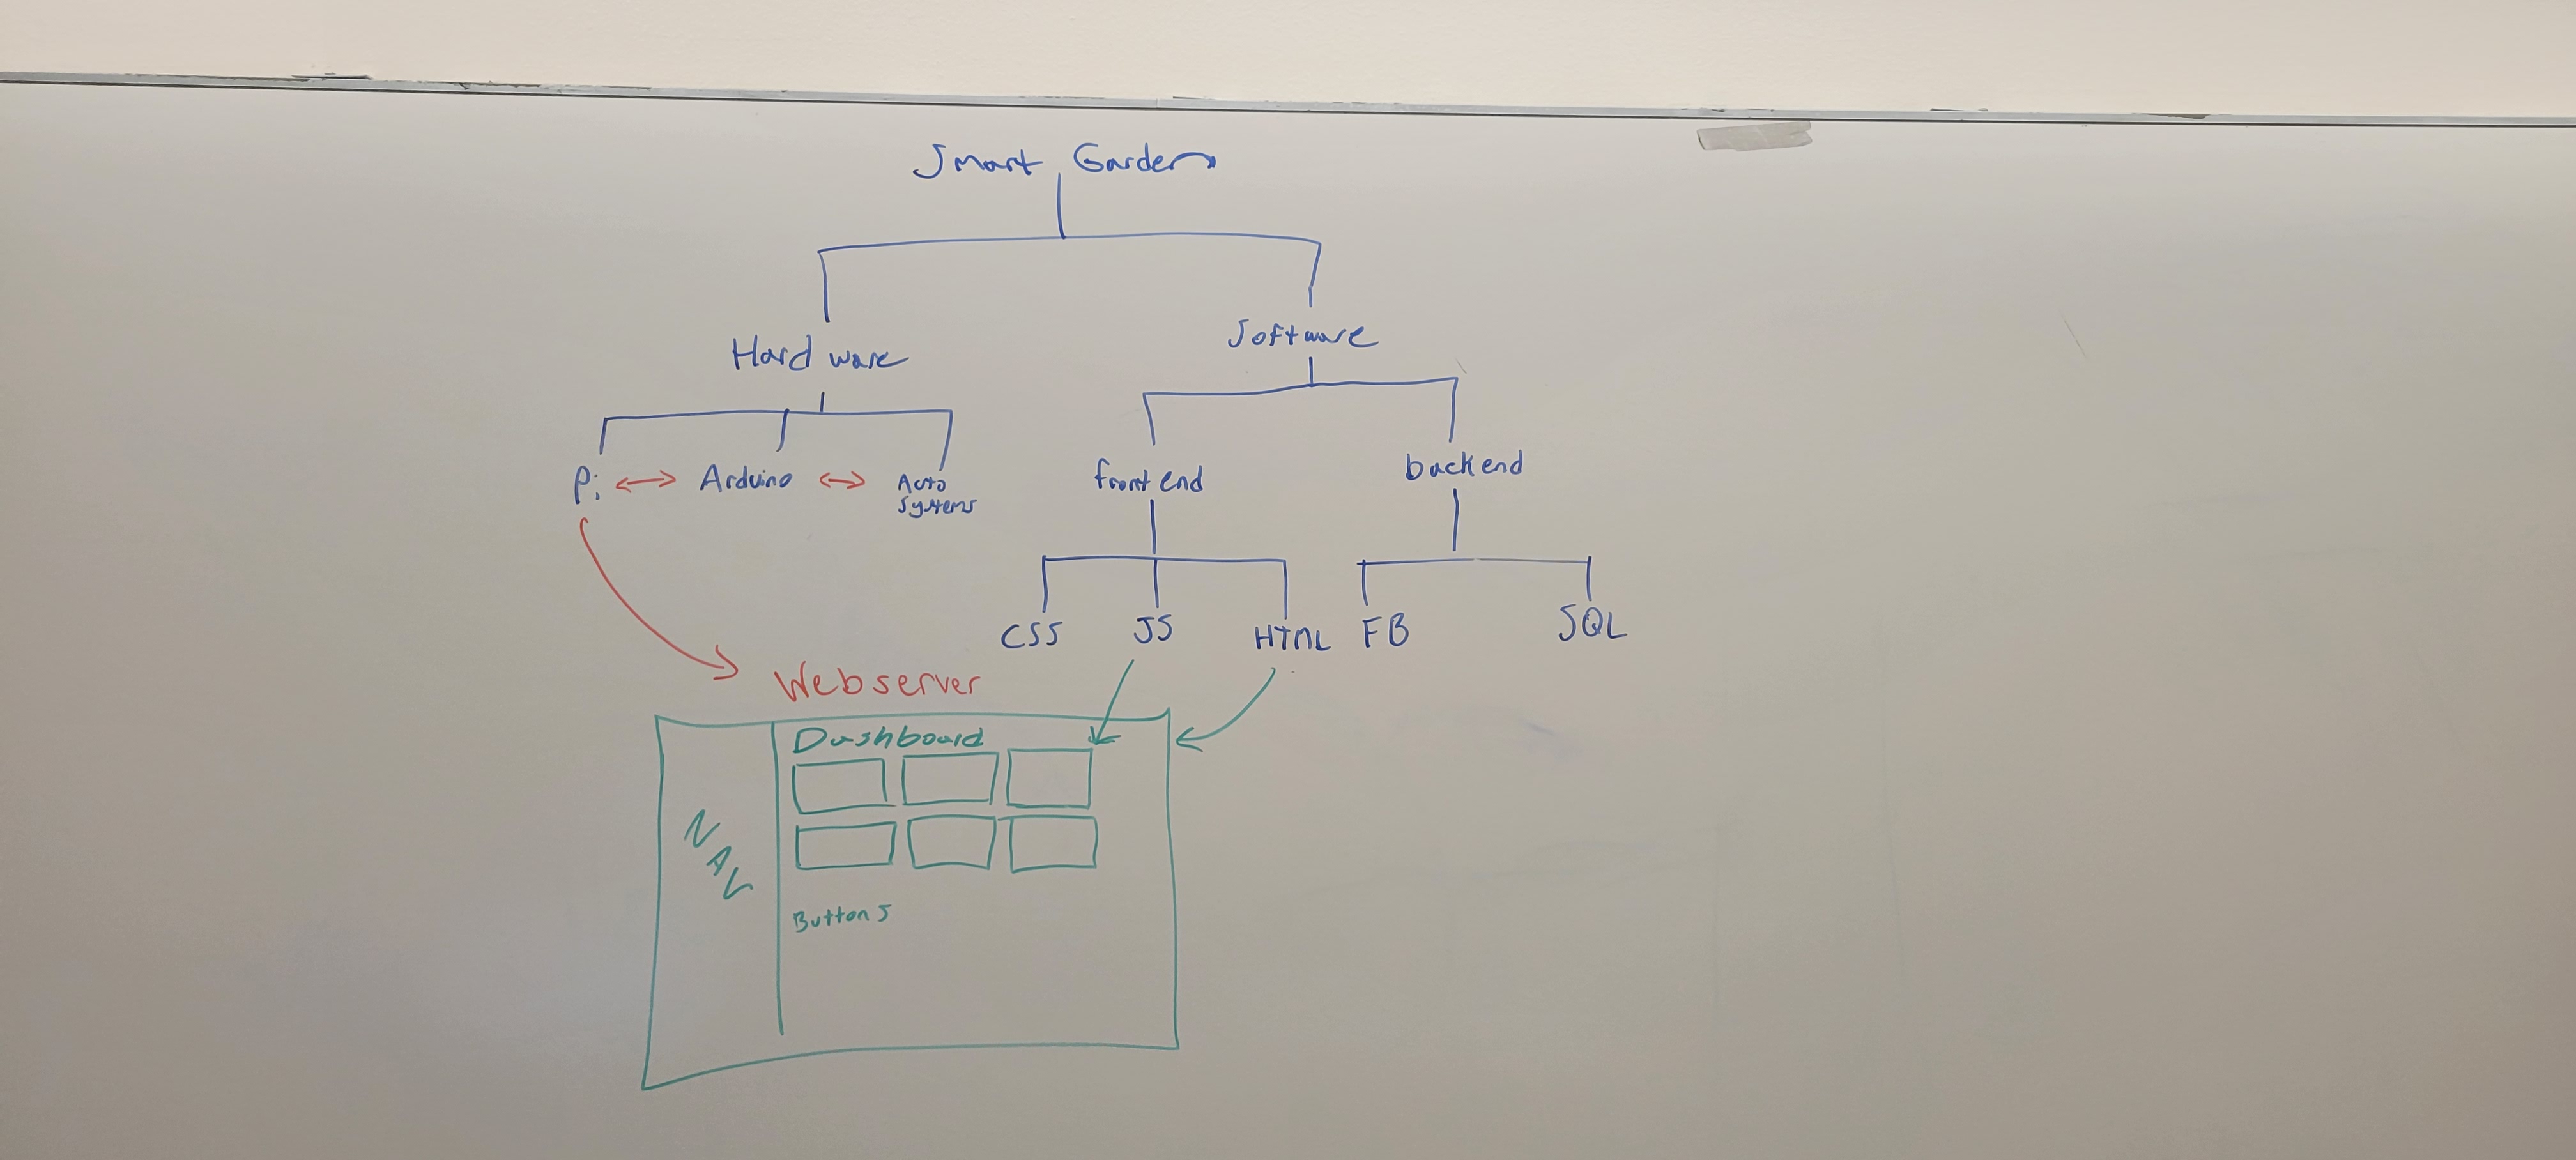 Smart Garden
Hardware
Software
Pi
Arduino
Auto
Systems
front end
backend
CSS
JS
HTML
FB
SQL
Webserver
Dashboard
NAV
Buttons